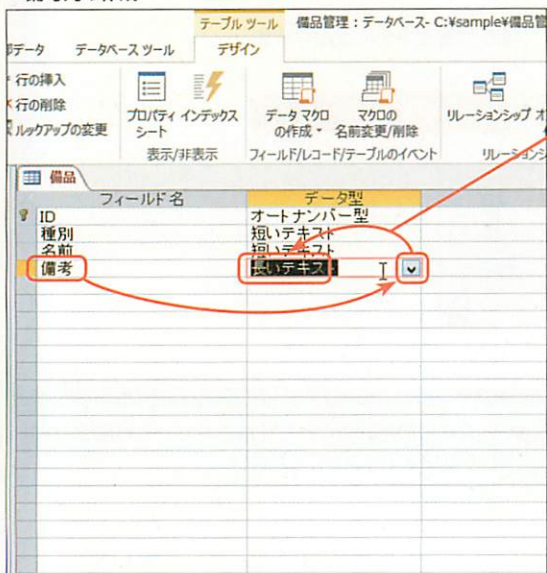 テーブル ツール 備品管理：データベース- C:¥sample¥備品管
データ データベース ツール デザイン
行の挿入
行の削除
ルックアップの変更
プロパティ シート
インデックス
データ マクロ の作成
マクロの 名前変更/削除
リレーションシップ オ
表示/非表示 フィールド/レコード/テーブルのイベント リレーションシ
備品
フィールド名 データ型
ID オートナンバー型
種別 短いテキスト
名前 短いテキスト
備考 長いテキスト